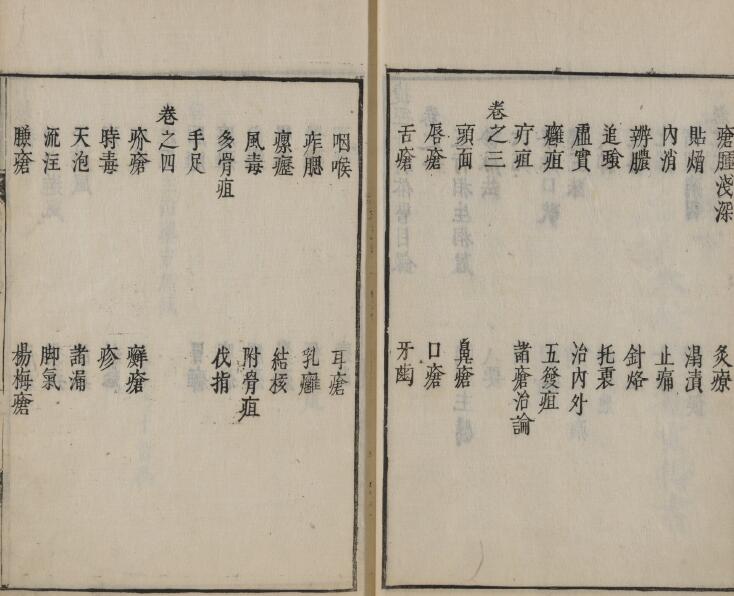 瘡腫淺深 灸療
貼熁 溻漬
內消 止痛
辨膿 針烙
追蝕 托裏
虛實 治內外
癰疽 五發疽
疔疽 諸瘡治論
卷之三
頭面 鼻瘡
唇瘡 口瘡
舌瘡 牙齒
咽喉 耳瘡
痄腮 乳癰
瘰癧 結核
風毒 附骨疽
多骨疽 伐指
手足
卷之四
疥瘡 癬瘡
時毒 疹
天泡 諸漏
流注 脚氣
臁瘡 楊梅瘡